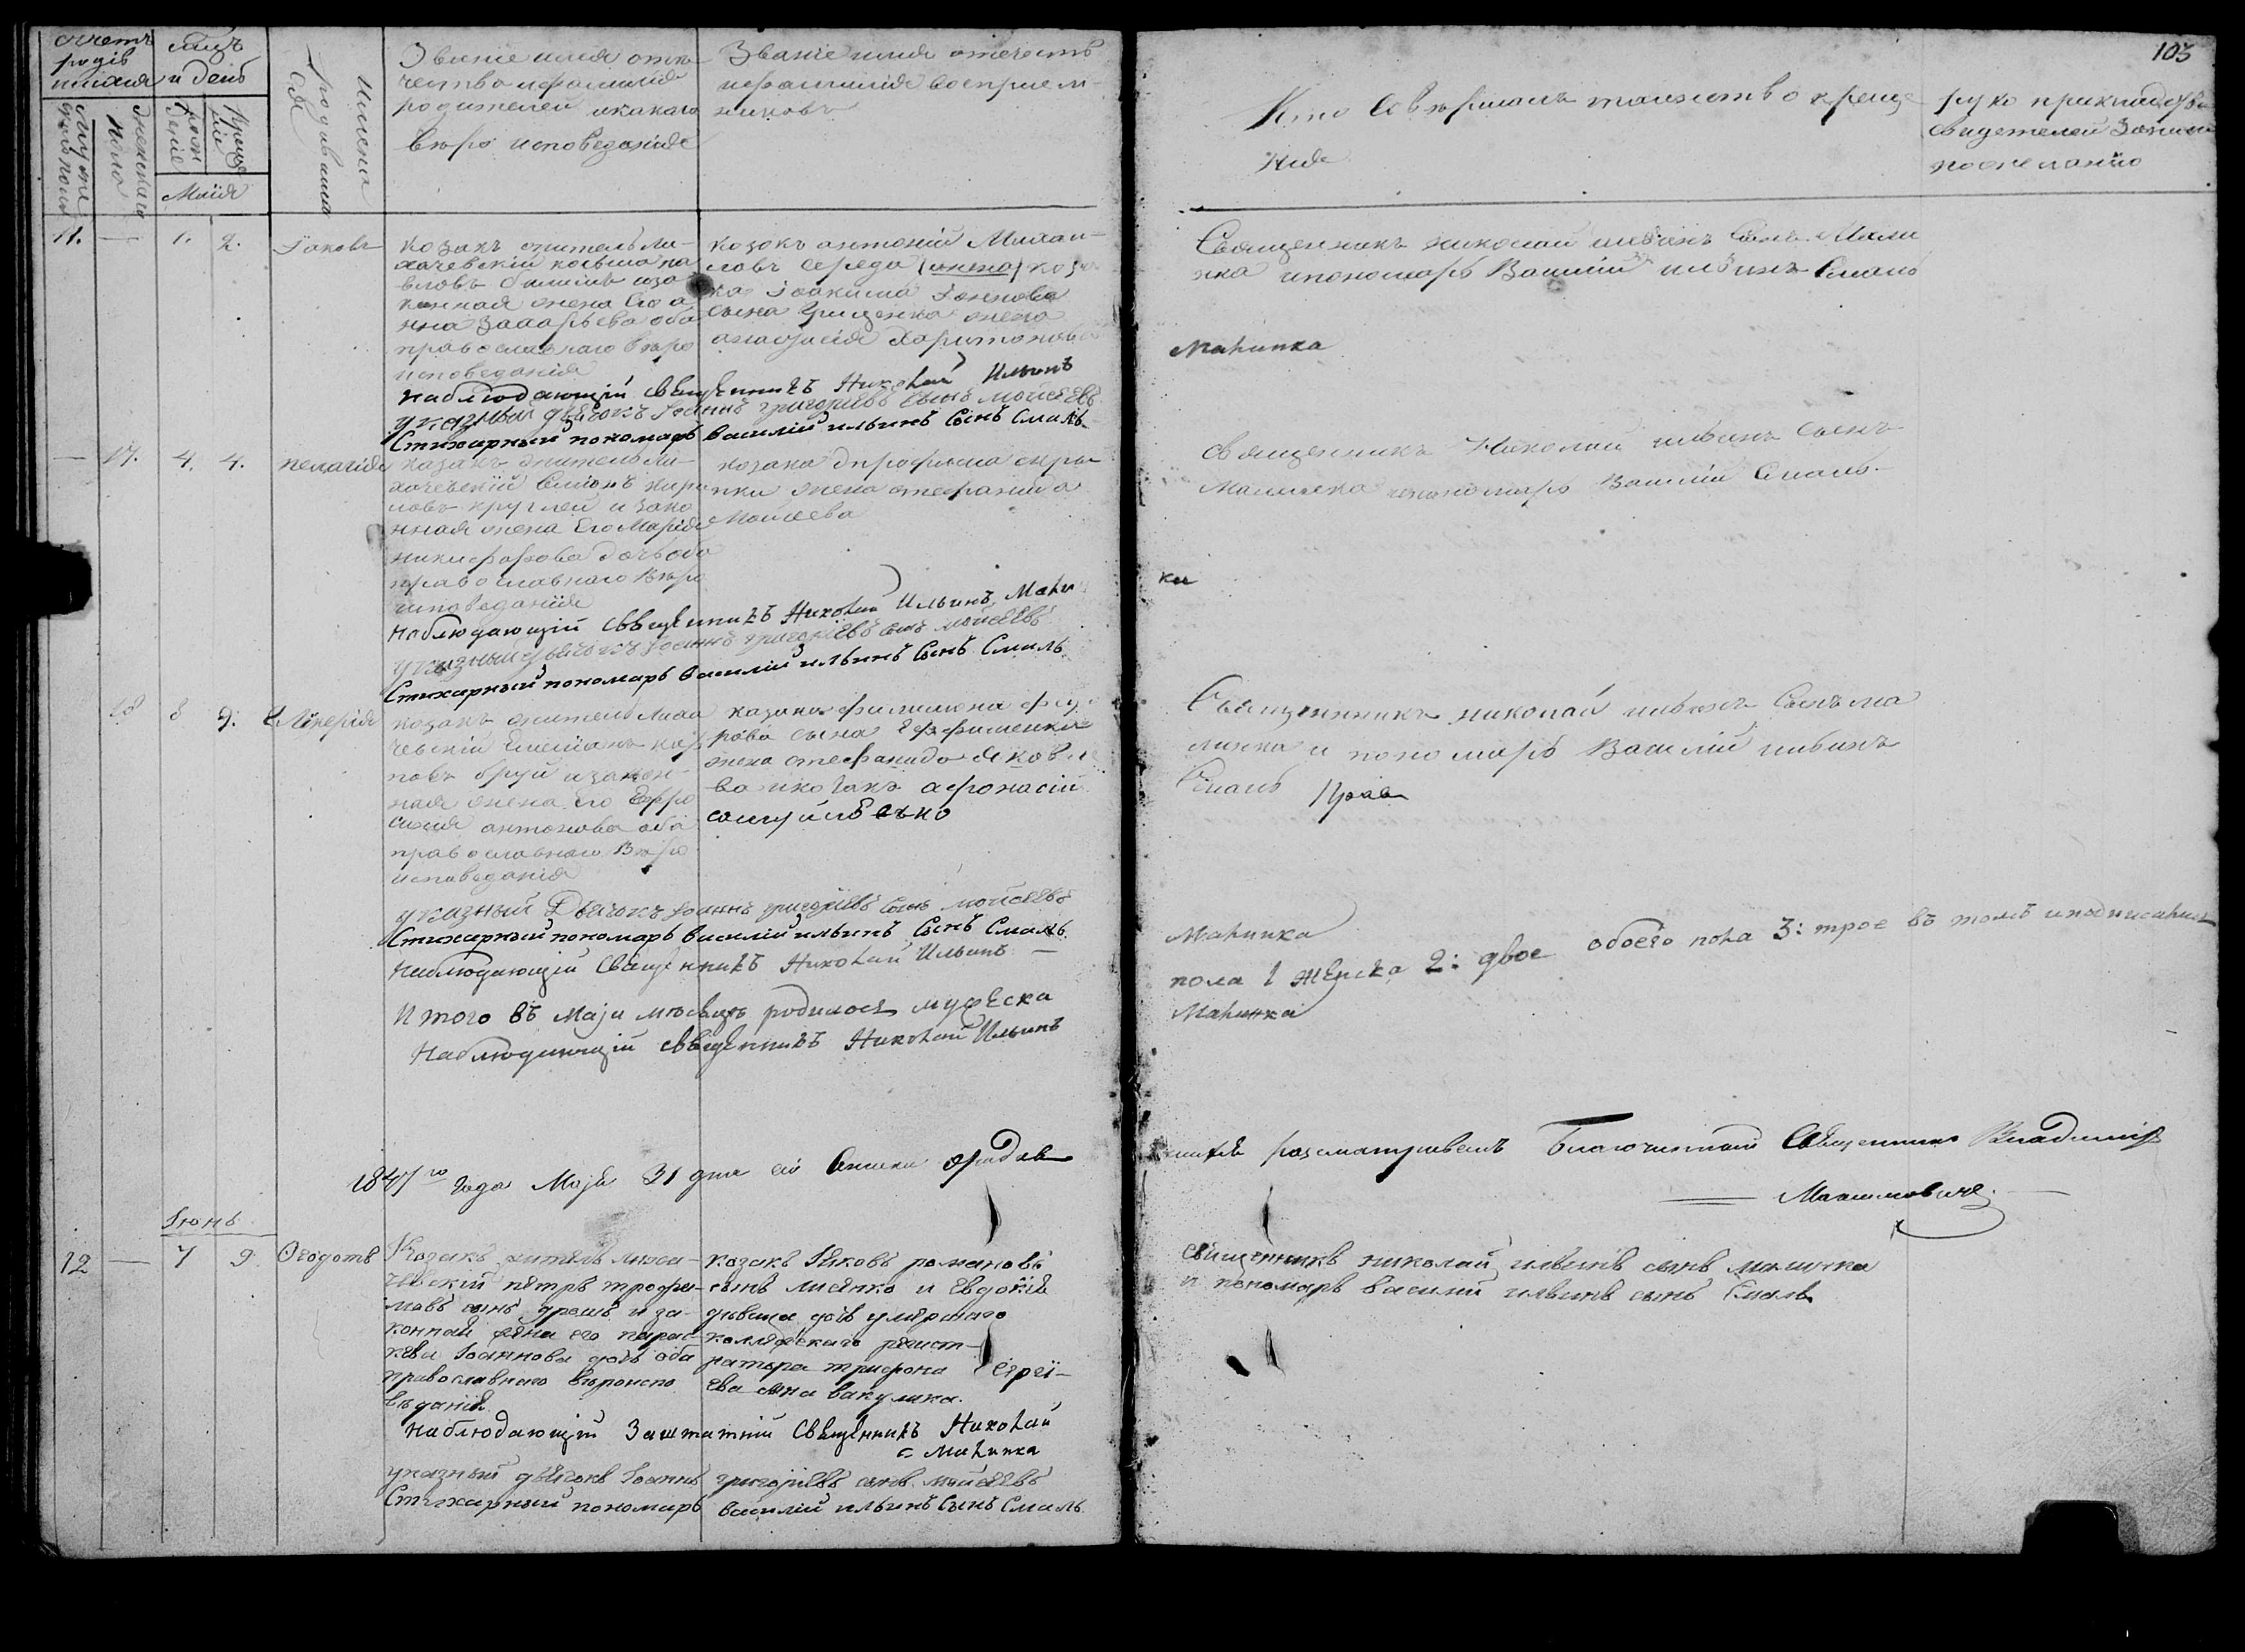 103
счетъ родів
мцъ и день
Маія
Имена родившихся
Званіе имя отче
чество и фамилія
родителей и какаго
Веро исповеданія
Званіе имя отечеств
и фамилія восприем-
никовъ
Кто Совершалъ таинство креще
нія
руко прикладств
свидетелей записи
по желанію
11. — 1. 2. Іаковъ
козакъ житель Ли-
хачевскій косьма па
вловъ
конная жена Его а
нна Захарьева оба
православнаго веро
исповеданія
козакъ антоній Михаи-
ловъ середа козa
ка Іоакима
сына Гриценка жена
анастасія Харитонова
Священникъ николай ильинъ Сынъ Мали
нка и пономарь Василій ильинъ Смаль
Наблюдающій священникъ Николай Ильинъ Малинка
указный дьячокъ Іоаннъ григоріевъ сынъ мойсеевъ
Стихарный пономарь василій ильинъ Сынъ Смаль
— 17. 4. 4. пелагія
казакъ житель Ли-
хачевскій Симіонъ кири
ловъ круглей и зако
нная жена Его Марія
никифорова дочь оба
православнаго Веро
исповеданія
козака дорофима скры
пки жена стефанида
Мойсеева
священникъ Николай ильинъ сынъ
Малинка и пономарь Василій Смаль
Наблюдающій священникъ Николай Ильинъ Малинка
указный дьячокъ Іоаннъ григоріевъ сынъ мойсеевъ
Стихарный пономарь василій ильинъ Сынъ Смаль
18 8 9. Гликерія
козакъ житель Лиха
чевскій Емеліанъ кар
повъ бруй и закон-
ная жена его Ефро
синія антонова оба
православнаго Веро
исповеданія
казака филимона
рова сына Ефименка
жена стефанида яковле
ва и козакъ афонасій
Священникъ николай ильинъ Сынъ ма
линка и пономарь Василій ильинъ
Смаль
указный Дьячокъ Іоаннъ григоріевъ сынъ мойсеевъ
Стихарный пономарь василій ильинъ Сынъ Смаль
Наблюдающій священникъ Николай Ильинъ — Малинка
Итого въ маји месяцъ родилося мужеска пола 1 женска 2: двое обоего пола 3: трое въ томъ и подписались
Наблюдающій священникъ Николай Ильинъ Малинка
1847го года Маја 31 дня сіи книги разсматривалъ Благочинный Священникъ Владиміръ
Максимовичъ
Іюнь
12 — 7 9 Ѳеодотъ
Козакъ житель лиха-
чевскій петръ трофи-
мовъ сынъ и за-
конная жена его парас-
кева Іоаннова дочь оба
православнаго вероиспо
веданія
козакъ Іяковъ романовъ
сынъ лисенко и Евдокія
девица дочь умершаго
коллежскаго регист-
ратора трифона Сергі-
ева сына вакулика.
священникъ николай ильинъ сынъ малинка
и пономарь василій ильинъ сынъ Смаль
Наблюдающій Заштатній Священникъ Николай
Малинка
указный дьячокъ Іоаннъ григоріевъ сынъ мойсеевъ
Стихарный пономарь василій ильинъ Сынъ Смаль